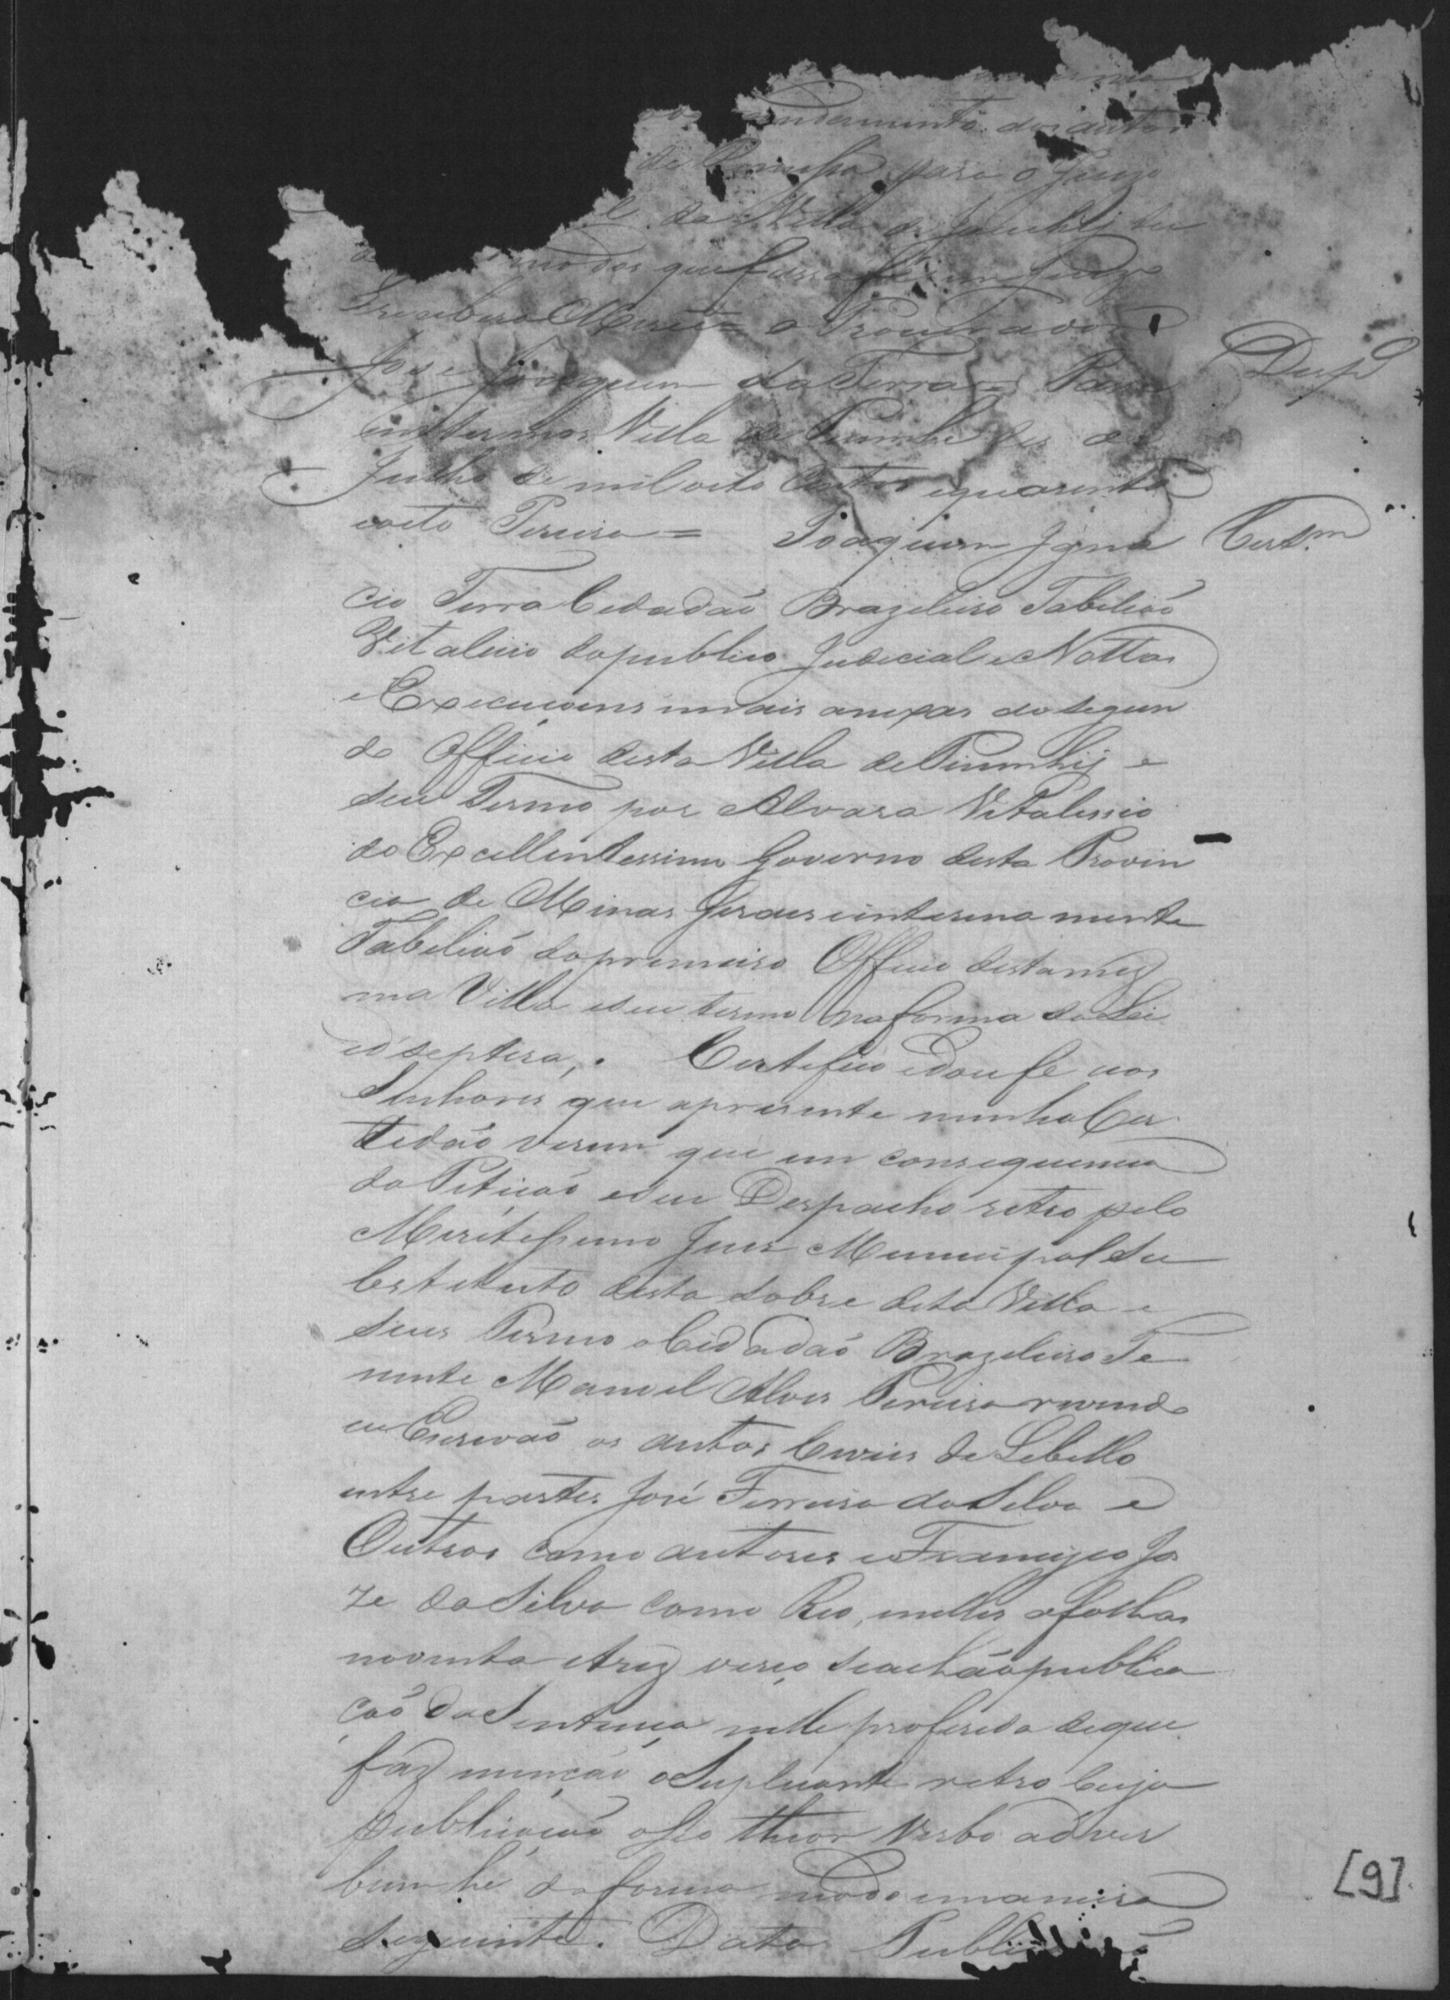 andamento dos autos
de para o Juizo
da Villa de
que
Mercê = o Procurador
José Joaquim da Terra = Passe Desp.º
em termos Villa de Piumhi dez de
Julho de mil oito Centos equarenta
eoito Pereira = Joaquim Igna Certam
cio Terra Cidadão Brazileiro Tabelião
Vitalicio dopublico Judicial e Nottas
e Execucoens emais anexas do segun
do Officio desta Villa de Piumhij e
seu Termo por Alvara Vitalicio
do Excellentessimo Governo desta Provin
cia de Minas Geraes einterina mente
Tabelião doprimeiro Officio destamez
ma Villa eseu termo naforma da Lei
Certefico edoufe aos
Senhores que apresente minha Cer
tedão verem que em consequencia
da Petição eseu Despacho retro pelo
Meritessimo Juiz Municipal Su
bstituto desta sobre dita Villa e
seus Termo o Cidadão Brazileiro Te
nente Manoel Alves Pereira revendo
eu Escrivão os autos Civeis de Lebello
entre partes José Ferreira da Silva e
Outros como autores e Francisco Jo
ze da Silva como Reo, enelles afolhas
noventa etrez verço seachaapublica
ção da Sentença nelle proferida deque
faz menção o Suplicante retro Cuja
publicação oseo theor Verbo adver
bum hé daforma modo emaneira
seguinte. Data Publicação
[9]